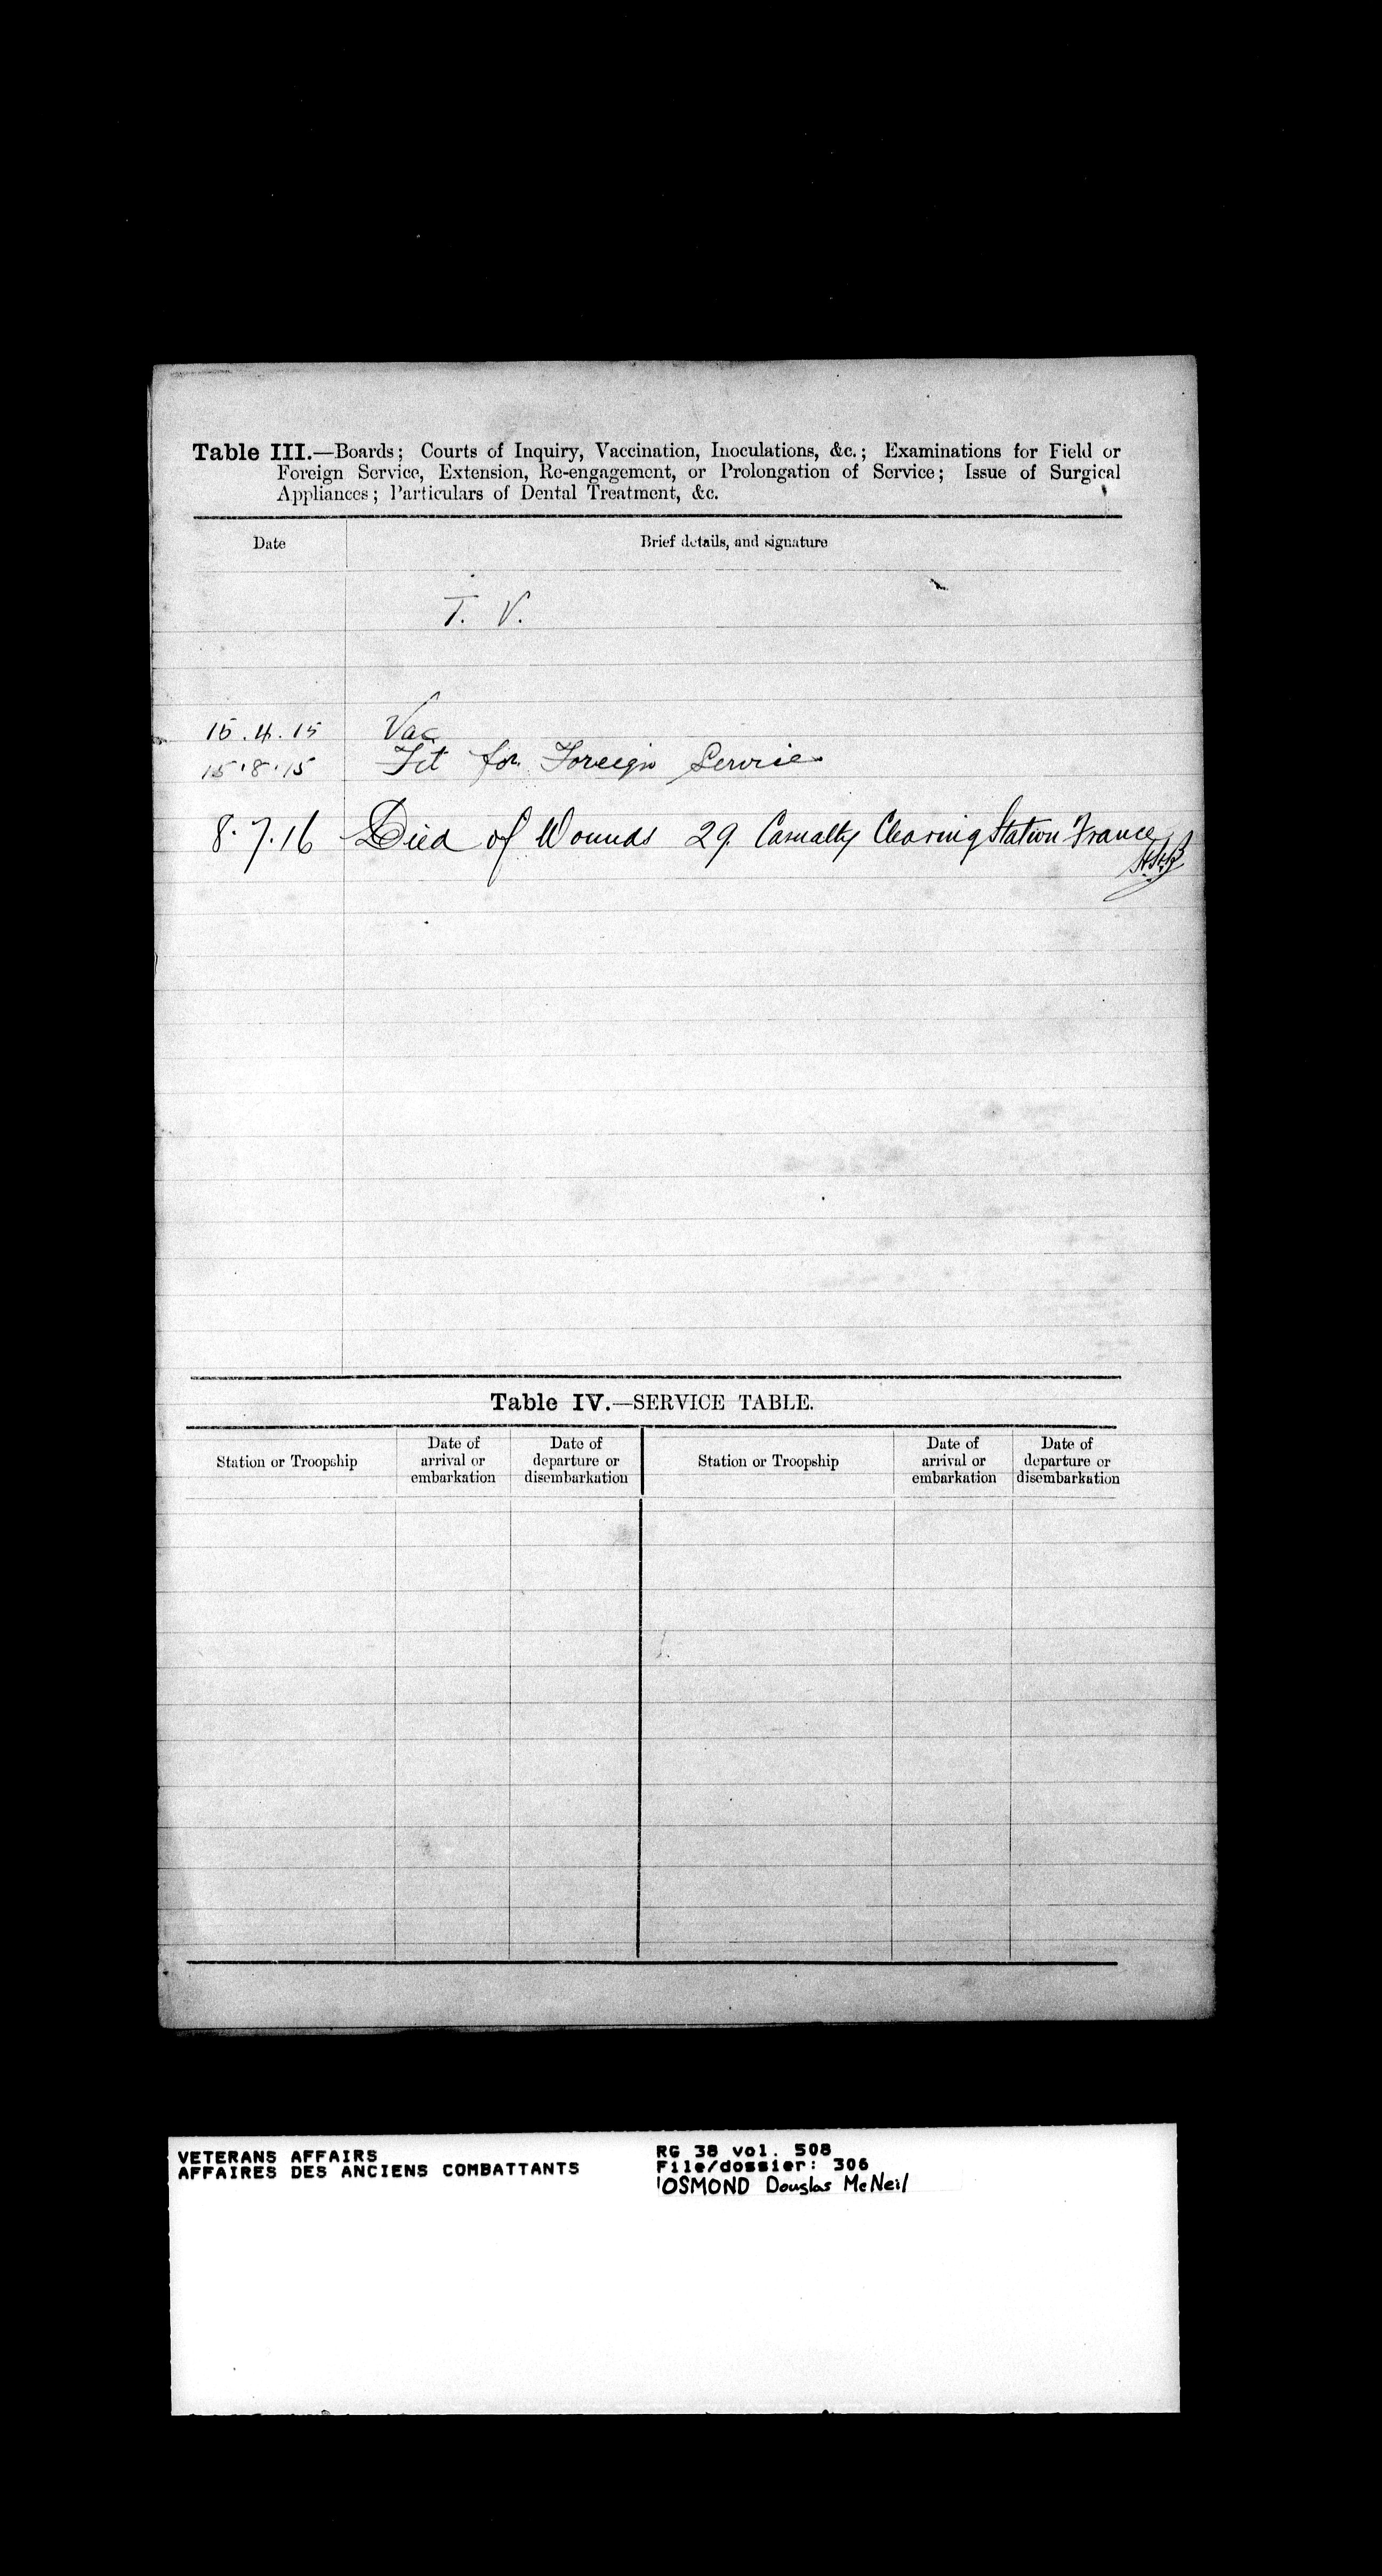 Table III.—Boards; Courts of Inquiry, Vaccination, Inoculations, &c.; Examinations for Field or
Foreign Service, Extension, Re-engagement, or Prolongation of Service; Issue of Surgical
Appliances; Particulars of Dental Treatment, &c.
Date Brief details, and signature
T. V.
15.4.15 Vac
15.8.15 Fit for Foreign Service
8.7.16 Died of Wounds 29 Casualty Clearing Station France
Table IV.—SERVICE TABLE.
Station or Troopship Date of arrival or embarkation Date of departure or disembarkation Station or Troopship Date of arrival or embarkation Date of departure or disembarkation
VETERANS AFFAIRS
AFFAIRES DES ANCIENS COMBATTANTS
RG 38 vol. 508
File/dossier: 306
OSMOND Douglas McNeil